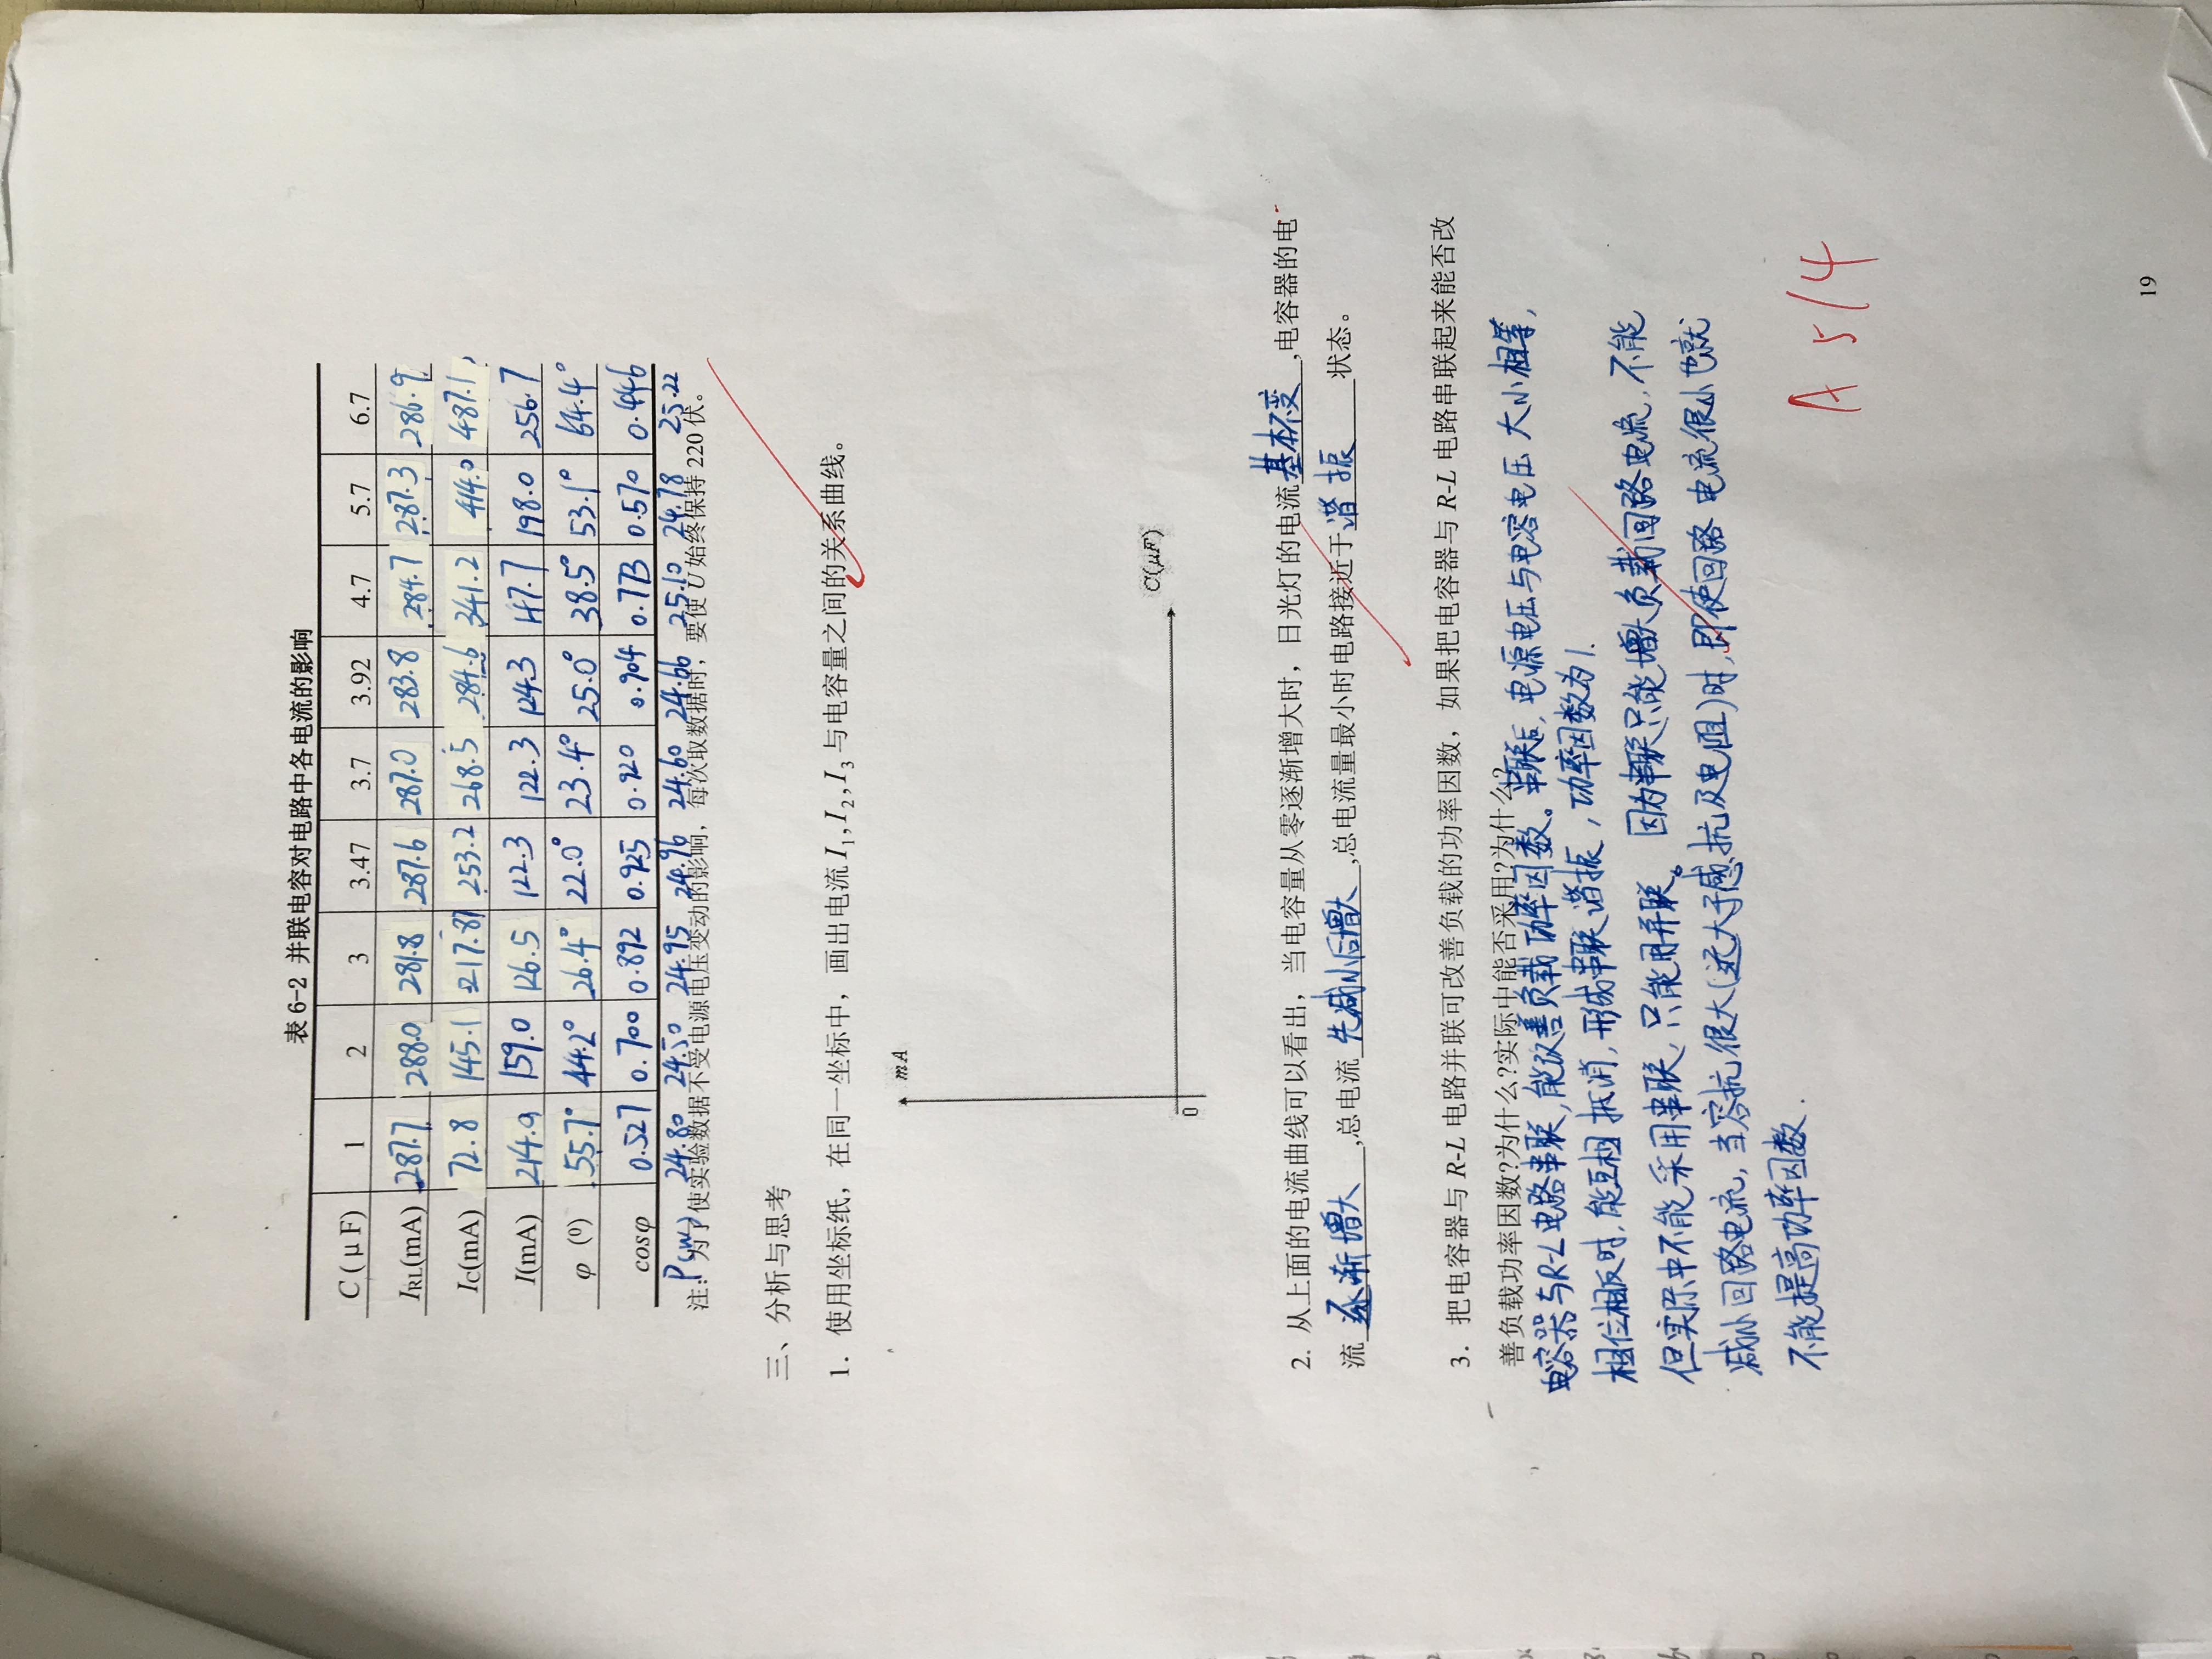 表 6-2 并联电容对电路中各电流的影响
C (μF) 1 2 3 3.47 3.7 3.92 4.7 5.7 6.7
IRL(mA) 287.7 288.0 281.8 287.6 287.0 283.8 284.7 287.3 286.9
IC(mA) 72.8 145.1 217.8 253.2 268.5 284.6 341.2 414.0 487.1
I(mA) 214.9 159.0 126.5 122.3 122.3 124.3 147.7 198.0 256.7
φ (⁰) 55.7° 44.2° 26.4° 22.0° 23.4° 25.0° 38.5° 53.1° 64.4°
cosφ 0.527 0.700 0.892 0.925 0.920 0.904 0.773 0.570 0.446
P(W) 24.80 24.50 24.95 24.96 24.60 24.66 25.10 24.78 25.22
注：为了使实验数据不受电源电压变动的影响，每次取数据时，要使 U 始终保持 220 伏。
三、分析与思考
1. 使用坐标纸，在同一坐标中，画出电流 I₁,I₂,I₃ 与电容量之间的关系曲线。
mA
C(μF)
0
2. 从上面的电流曲线可以看出，当电容量从零逐渐增大时，日光灯的电流 基本不变 ,电容器的电
流 逐渐增大 ,总电流 先减小后增大 ,总电流量最小时电路接近于 谐振 状态。
3. 把电容器与 R-L 电路并联可改善负载的功率因数，如果把电容器与 R-L 电路串联起来能否改
善负载功率因数?为什么?实际中能否采用?为什么?
电容器与R-L电路串联,能改善负载功率因数。串联后,电源电压与电容电压大小相等,
相位相反时,能互相抵消,形成串联谐振,功率因数为1.
但实际中不能采用串联,只能用并联。因为串联只能增大负载回路电流,不能
减小回路电流,当容抗很大(远大于感抗及电阻)时,即使回路电流很小也就
不能提高功率因数.
A 5/4
19